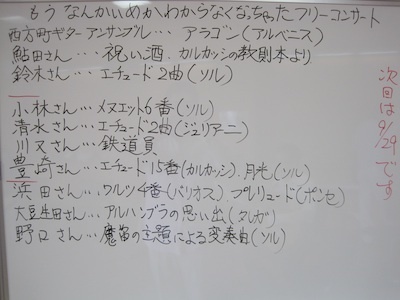 もうなんかいめかわからなくなっちゃったフリーコンサート
西方町ギターアンサンブル… アラゴン(アルベニス)
鮎田さん… 祝い酒. カルカッシの教則本より
鈴木さん… エチュード2曲(ソル)
小林さん… メヌエット6番(ソル)
清水さん… エチュード2曲(ジュリアーニ)
川又さん… 鉄道員
豊崎さん… エチュード15番(カルカッシ). 月光(ソル)
浜田さん… ワルツ4番(バリオス) プレリュード(ポンセ)
大豆生田さん… アルハンブラの思い出(タレガ)
野口さん… 魔笛の主題による変奏曲(ソル)
次回は9/29です